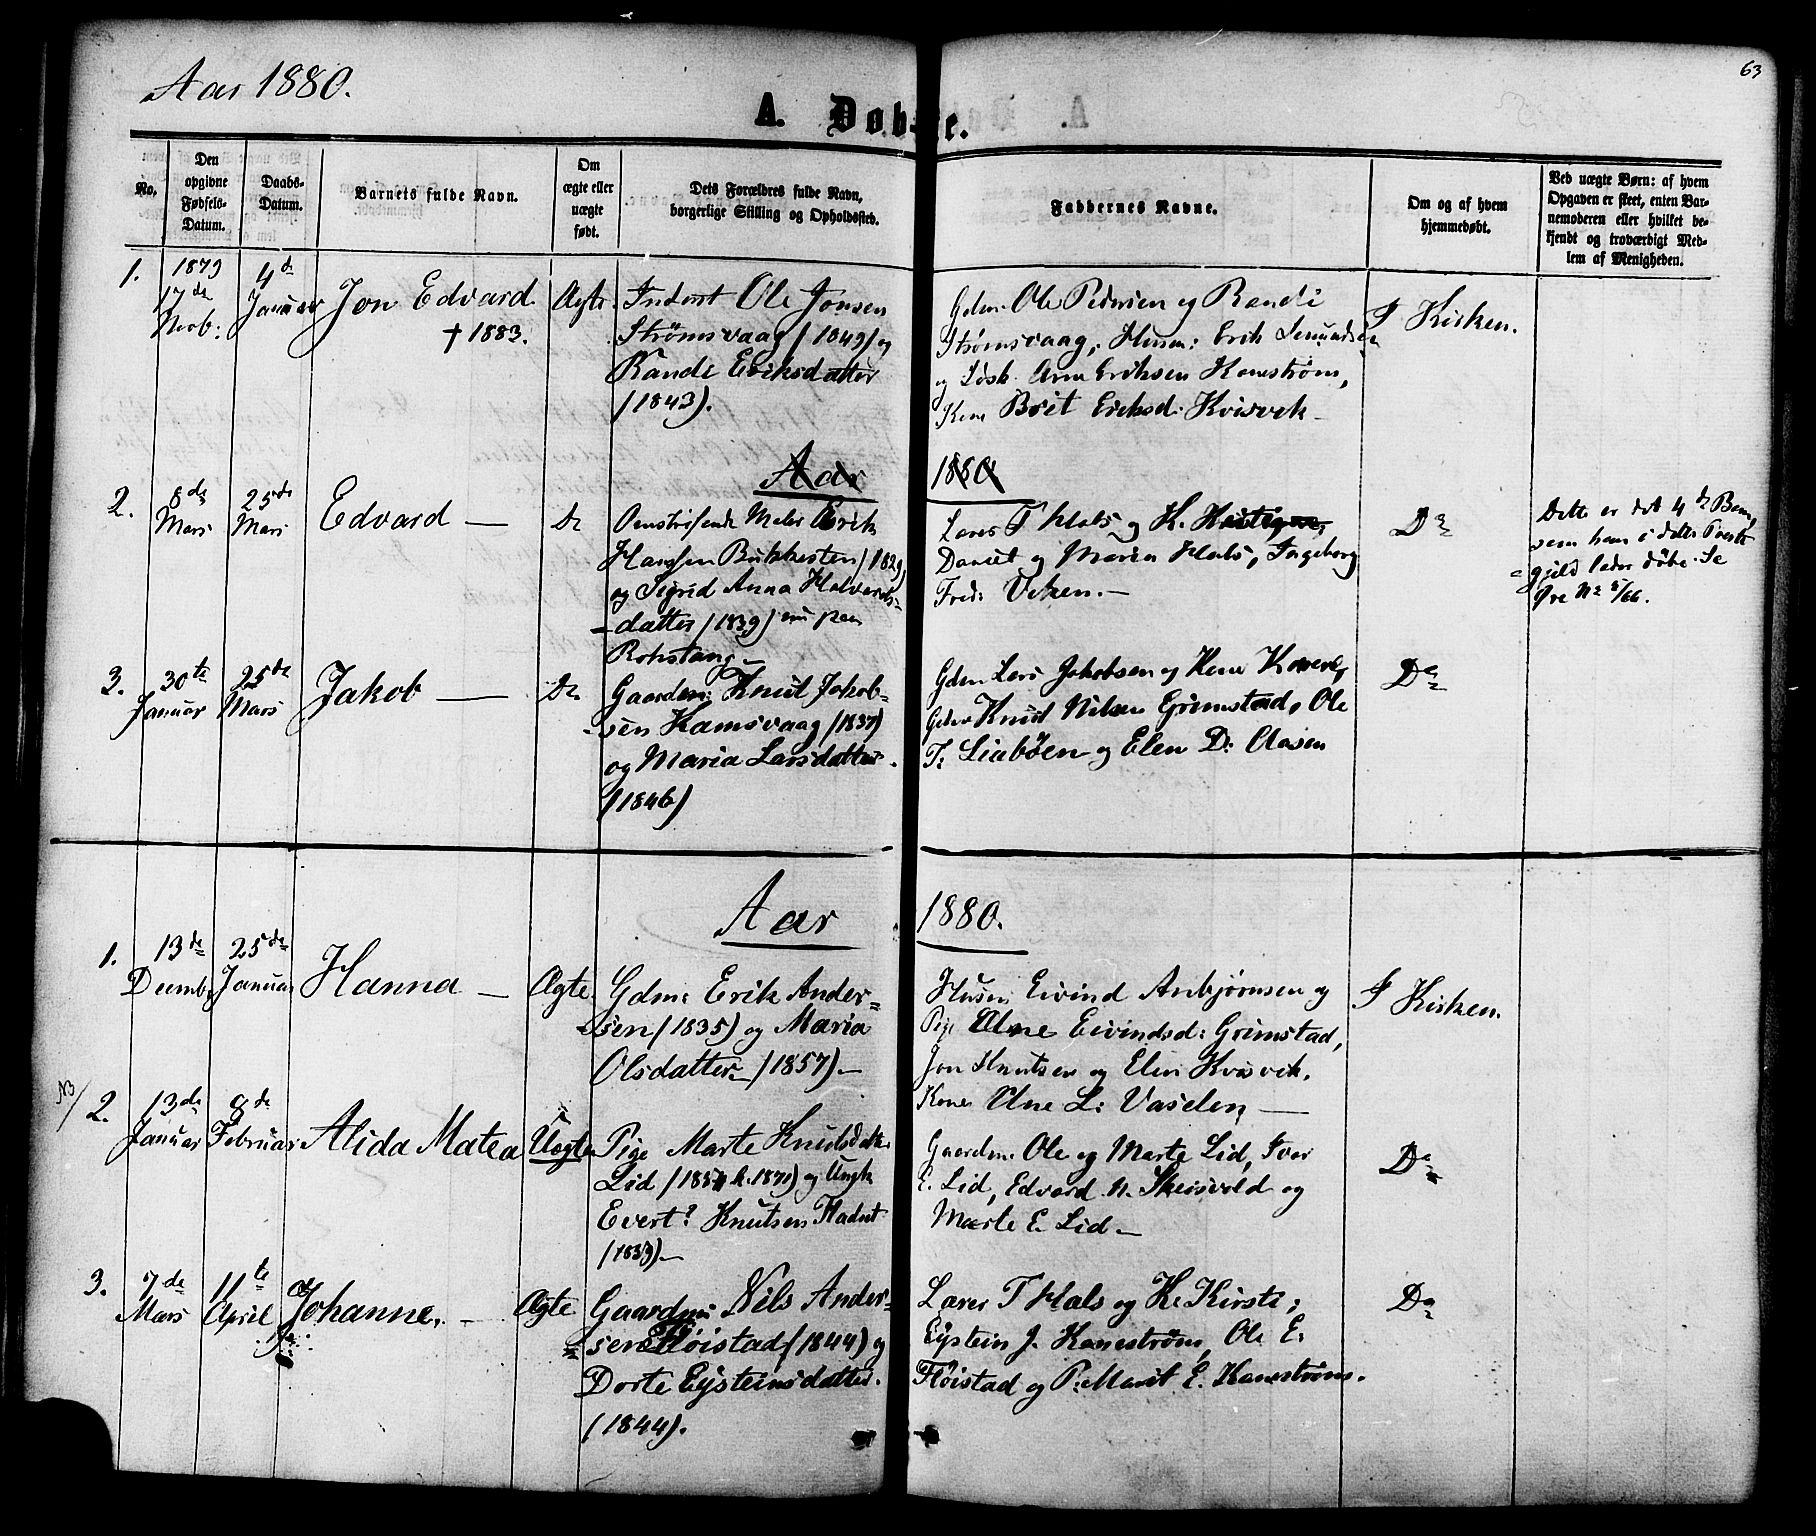 63
Aar 1880.
A. Døbte.
No.
Den opgivne Fødsels-Datum.
Daabs-Datum.
Barnets fulde Navn.
Om ægte eller uægte født.
Dets Forældres fulde Navn, borgerlige Stilling og Opholdssted.
Faddernes Navne.
Om og af hvem hjemmedøbt.
Ved uægte Børn: af hvem Opgaven er skeet, enten Barnemoderen eller hvilket bekjendt og troværdigt Medlem af Menigheden.
1.
1879
17de
Novb:
4de
Januar
Jon Edvard
† 1883.
Ægte
Inderst Ole Jonsen
Strømsvaag (1849) og
Randi Eriksdatter
(1843).
Gdm. Ole Pedersen og Randi
Strømsvaag, Husm: Erik Semundsen
og Løsk. Arn Eriksen Kanestrøm,
Kone Brit Eriksd: Kvisvik
I Kirken.
Aar 1880
2.
8de
Mars
25de
Mars
Edvard —
Do
Omstreifende Maler Erik
Hanssen Bukkesten (1829)
og Sigrid Anna Halvards-
datter (1839) nu paa
Rokstang
Lærer T Hals og K.
Daniel og Maren Hals, Ingeborg
Fred: Viken. —
Do
Dette er det 4de Barn,
som han i dette Præste-
gjeld lader døbe. Se
Øre No 5/66.
3.
30te
Januar
25de
Mars
Jakob —
Do
Gaardm: Knut Jakob-
sen Hamsvaag (1837)
og Maria Larsdatter
(1846)
Gdm Lars Jakobsen og Kone
Gdm Knut Nilsen Grimstad, Ole
T: Liabøen og Elen D: Aasen
Do
Aar 1880.
1.
13de
Decembr
25de
Januar
Hanna —
Ægte
Gdm: Erik Ander-
sen (1835) og Maria
Olsdatter (1857) —
Husm Eivind Anbjørnsen og
Pige Ane Eivindsd: Grimstad,
Jon Knutsen og Elen Kvisvik,
Kone Ane L: Vaselen —
I Kirken.
NB/
2.
13de
Januar
8de
Februar
Alida Matea
Uægte
Pige Marte Knutsdatter
Lid (1854 k. 1871) og Ungk
Evert? Knutsen Fladset
(1859) —
Gaardm. Ole og Marte Lid, Iver
E. Lid, Edvard N. Skeisvold og
Marte E. Lid —
Do
3.
7de
Mars
11te
April
Johanne. —
Ægte
Gaardm: Nils Ander-
sen Fløistad (1844) og
Dorte Eysteinsdatter
(1844).
Lærer T Hals og K. Kirsti;
Eystein J. Kanestrøm, Ole E.
Fløistad og P: Marit E. Kanestrøm.
Do